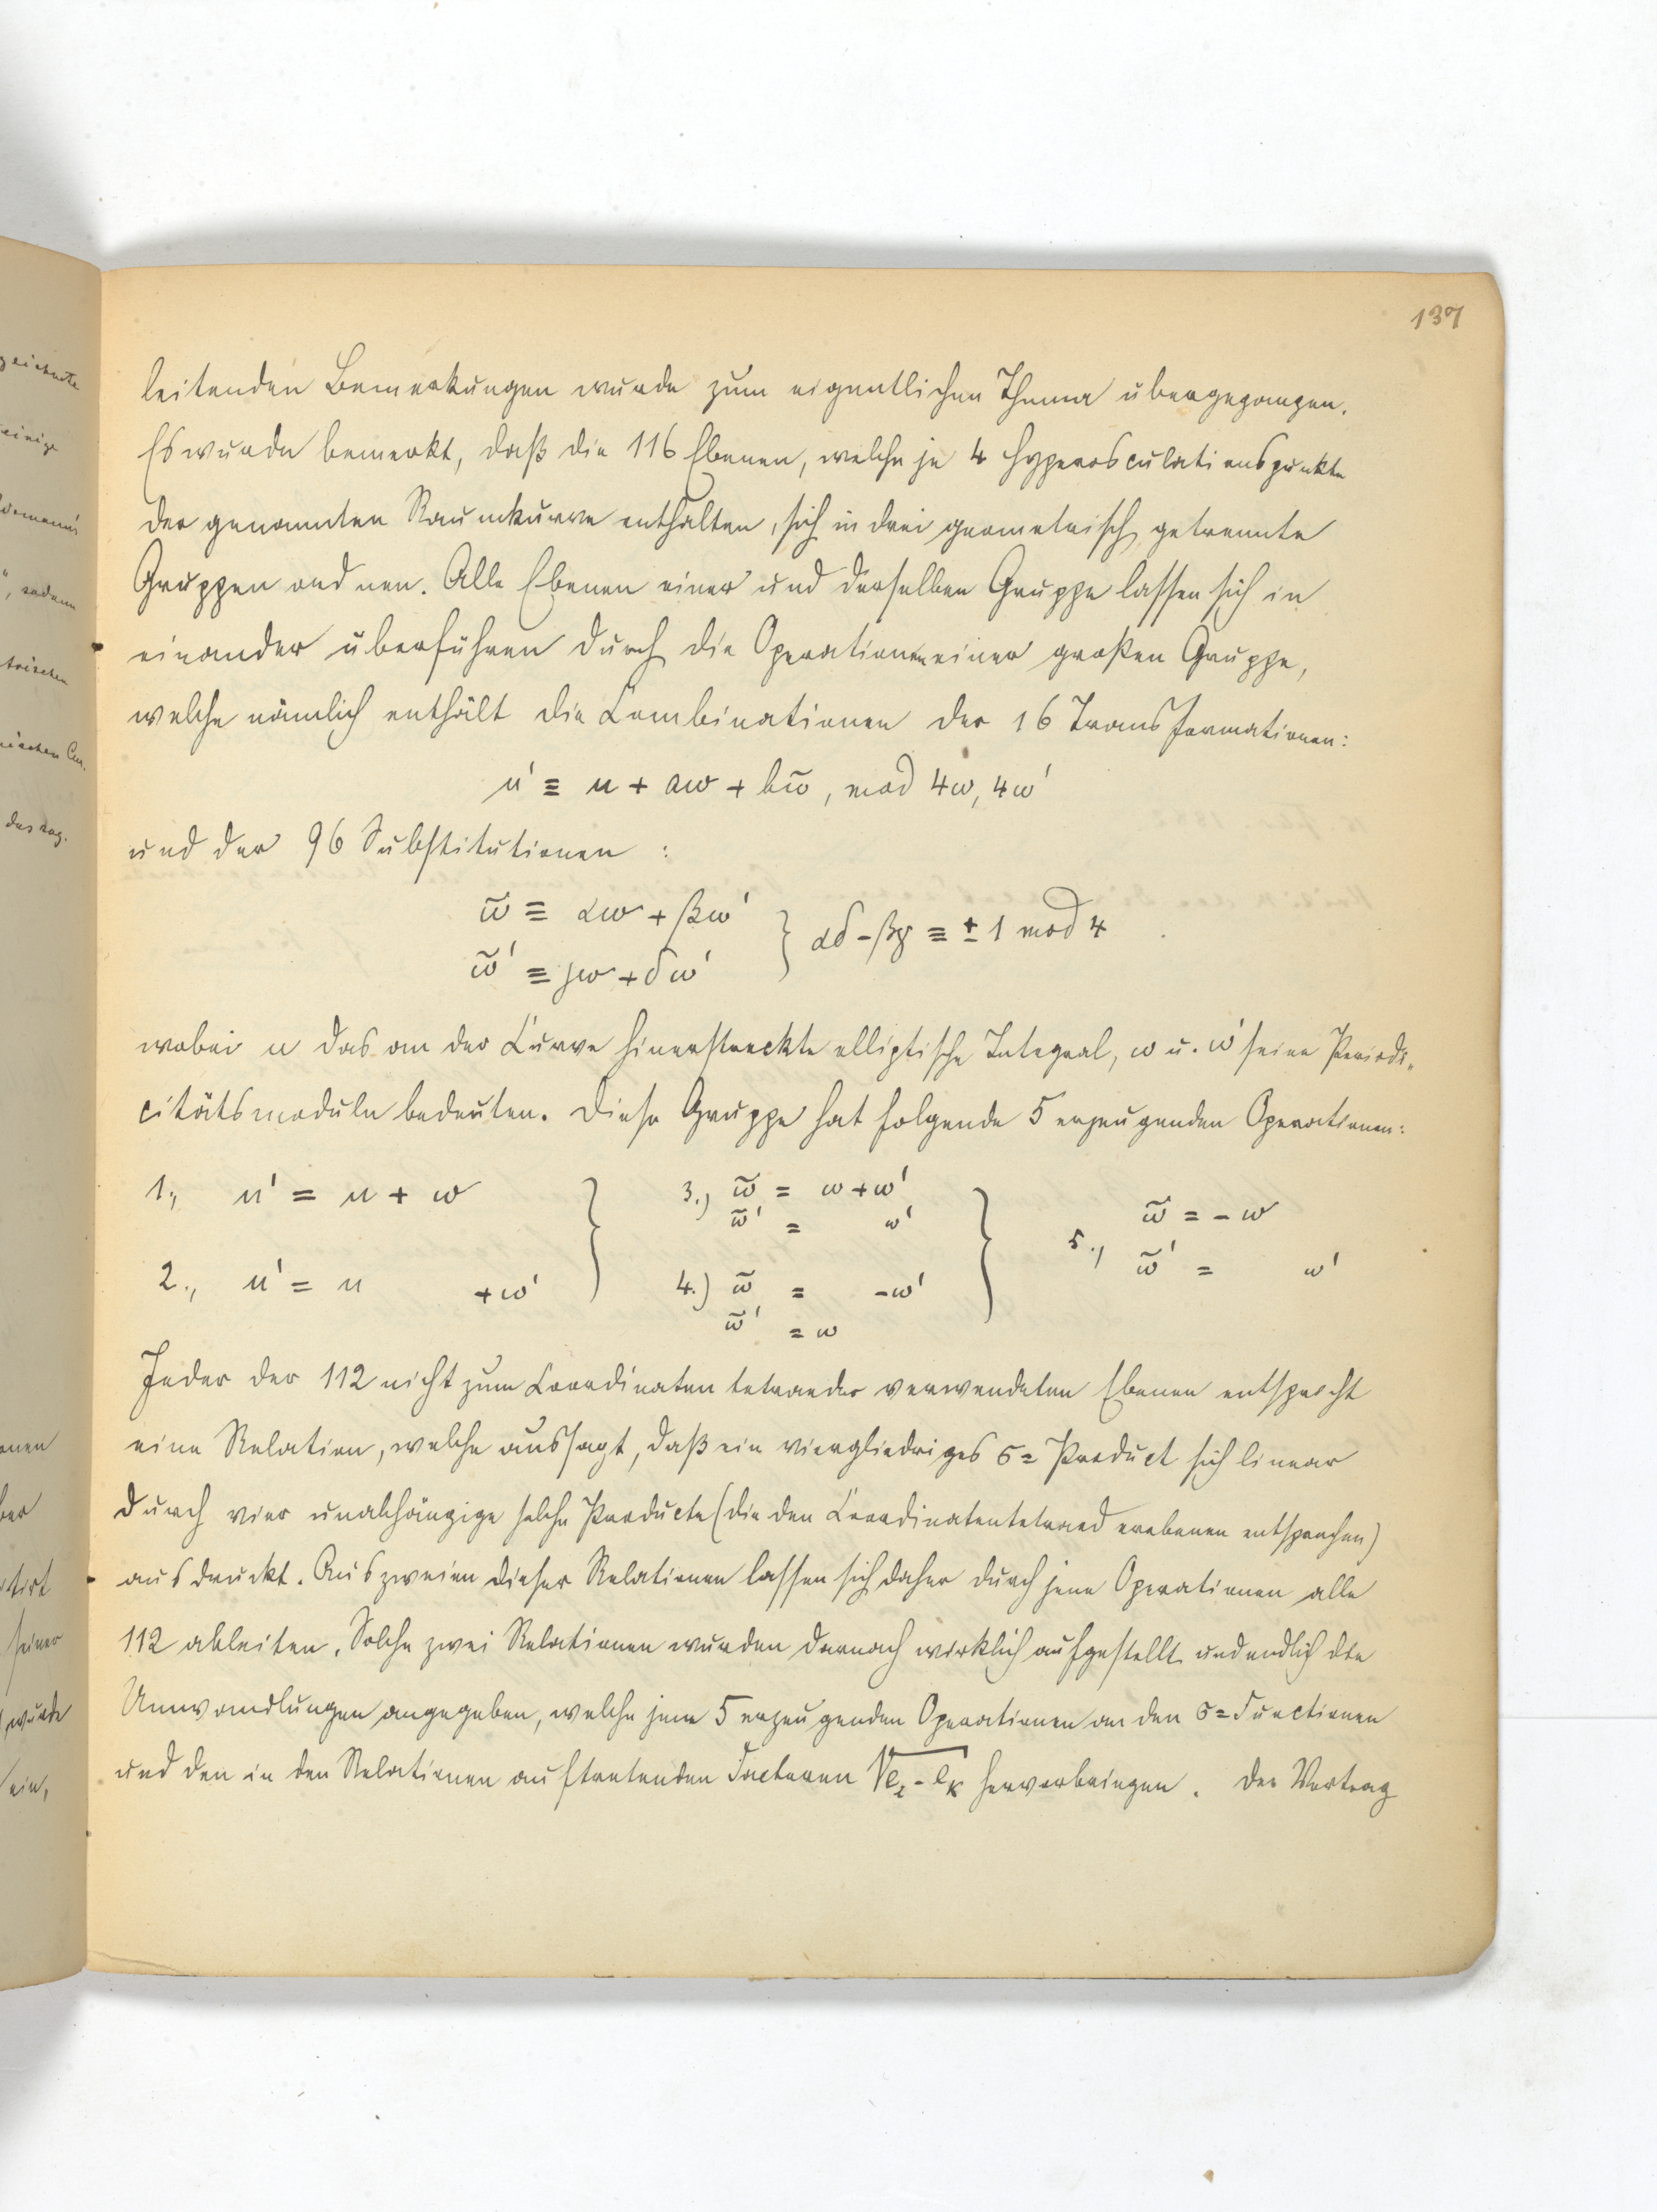 137
leitenden Bemerkungen wurde zum eigentlichen Thema übergegangen.
Es wurde bemerkt, daß die 116 Ebenen, welche je 4 Hyperosculationspunkte
der genannten Raumkurve enthalten, sich in drei geometrisch getrennte
Gruppen ordnen. Alle Ebenen einer und derselben Gruppe lassen sich in
einander überführen durch die Operationen einer großen Gruppe,
welche nämlich enthält die Combinationen der 16 Transformationen:
u' ≡ u + aω + bω̃, mod 4ω, 4ω'
und der 96 Substitutionen :
ω̃ ≡ αω + βω'
ω̃' ≡ γω + δω' } αδ - βγ ≡ ± 1 mod 4
wobei u das an der Curve hinerstreckte elliptische Integral, ω u. ω' seine Periodi-
citätsmoduln bedeuten. Diese Gruppe hat folgende 5 erzeugenden Operationen:
1., u' = u + ω
2., u' = u + ω' }
3.) ω̃ = ω + ω'
ω̃' = ω'
4.) ω̃ = -ω'
ω̃' = ω }
5., ω̃ = - ω
ω̃' = ω'
Jeder der 112 nicht zum Coordinatentetraeder verwendeten Ebenen entspricht
eine Relation, welche aussagt, daß ein viergliedriges σ= Product sich linear
durch vier unabhängige solche Producte (die den Coordinatentetraederebenen entsprechen)
ausdruckt. Aus zweien dieser Relationen lassen sich daher durch jene Operationen alle
112 ableiten. Solche zwei Relationen wurden darnach wirklich aufgestellt und endlich die
Umwandlungen angegeben, welche jene 5 erzeugenden Operationen an den σ= Functionen
und den in den Relationen auftretenden Factoren √e_i - e_k hervorbringen. Der Vortrag